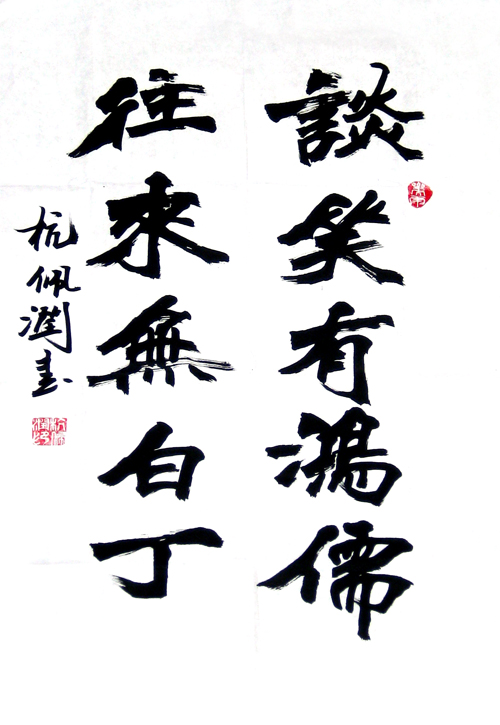 談笑有鴻儒
往來無白丁
杭佩潤書